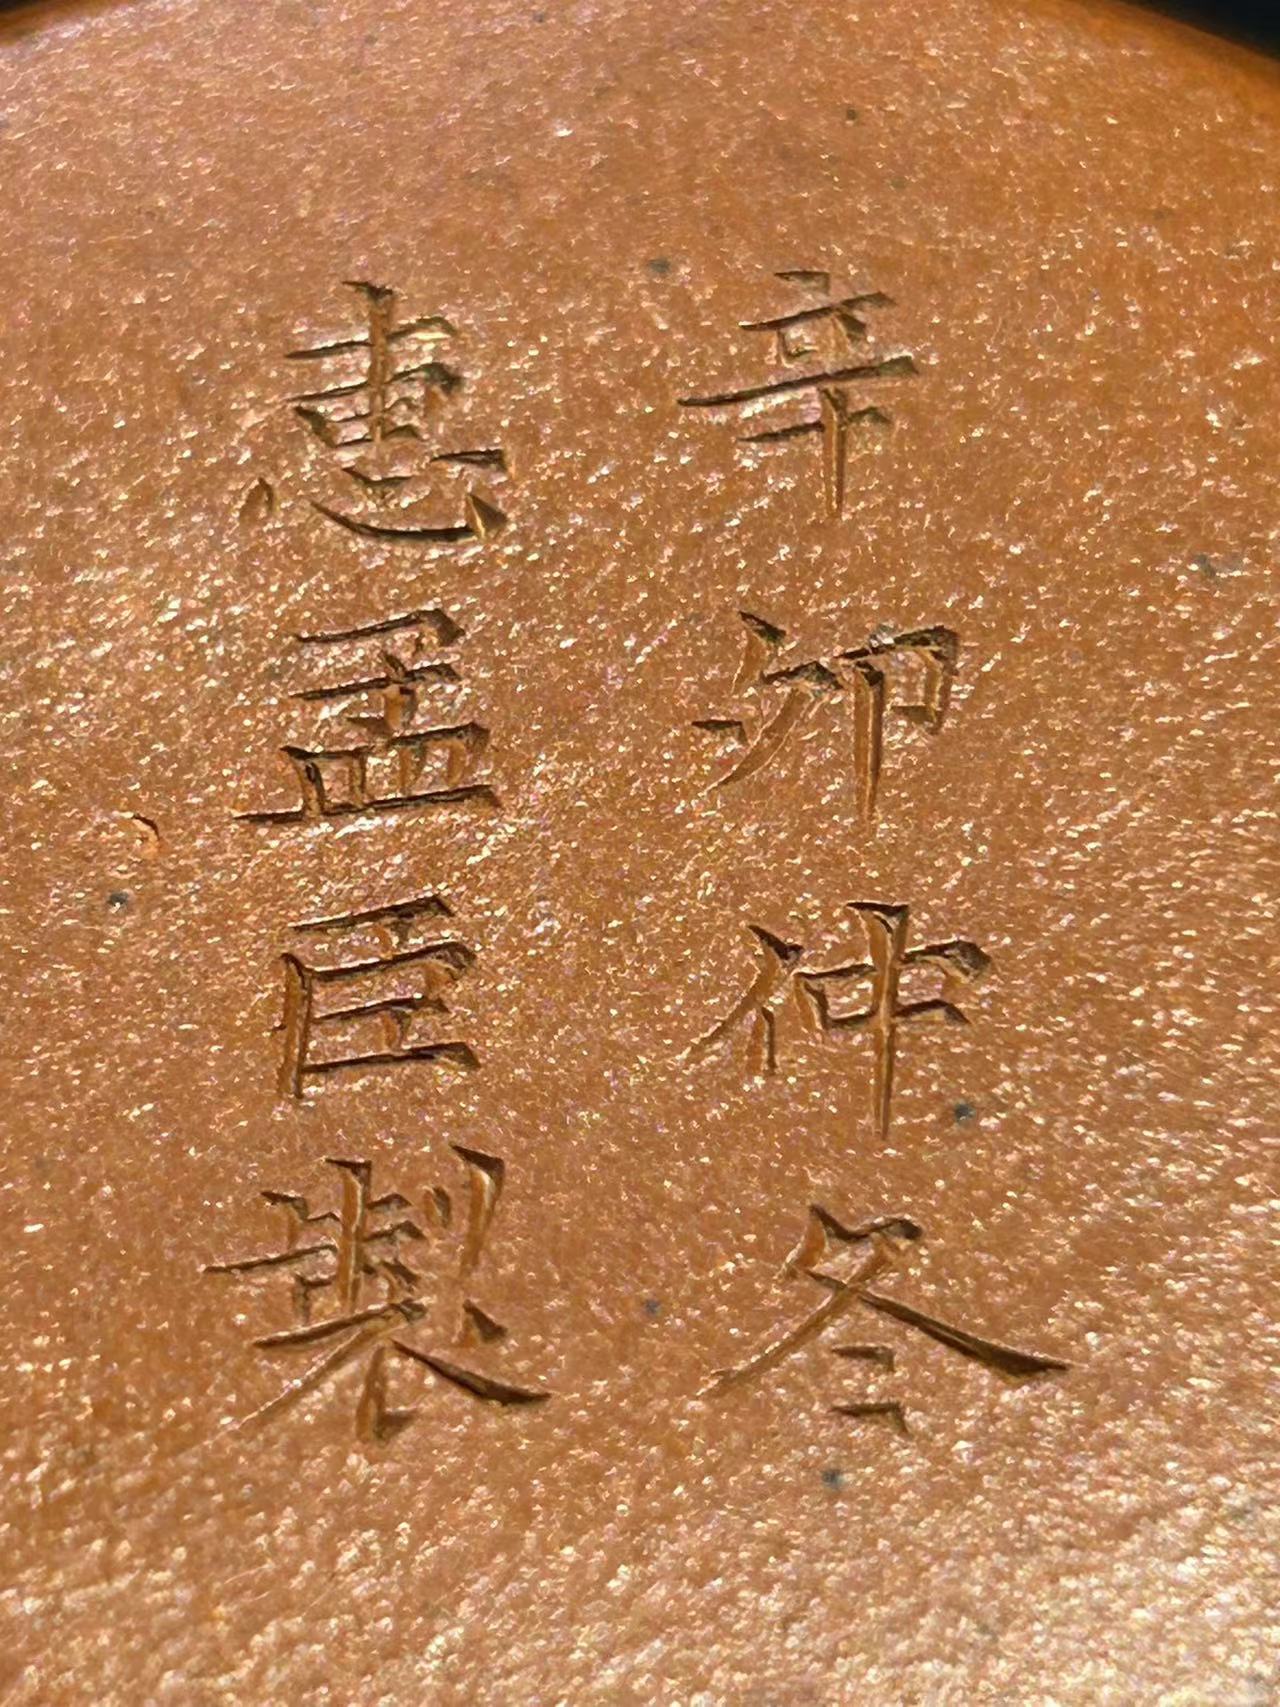 辛卯仲冬
惠孟臣製